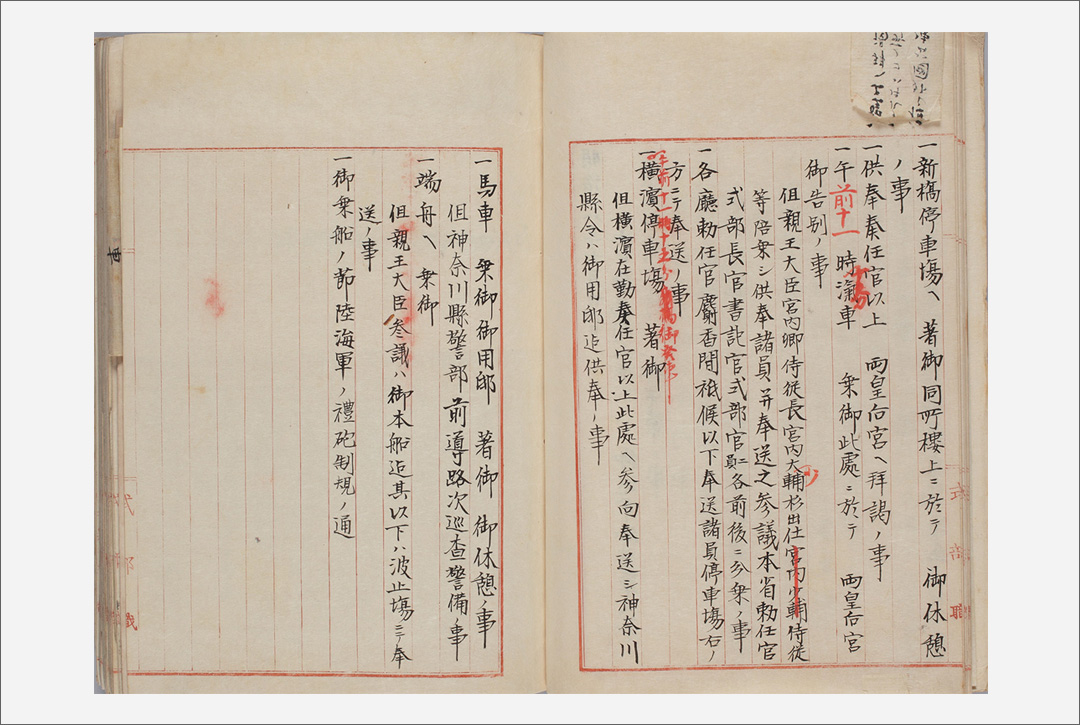 一新橋停車塲ヘ 著御同所樓上ニ於テ 御休憩
ノ事
一供奉奏任官以上 両皇后宮ヘ拜謁ノ事
一午前十一時 滊車 乗御此處ニ於テ 両皇后宮
御告別ノ事
但親王大臣宮内卿侍従長宮内大輔杉出仕宮内少輔侍従
等陪乗シ供奉諸員并奉送之参議本省勅任官
式部長官書記官式部官員ニ各前後ニ分乗ノ事
一各廳勅任官麝香間祗候以下奉送諸員停車塲右ノ
方ニテ奉送ノ事
一横濱停車塲 著御
但横濱在勤奏任官以上此處ヘ参向奉送シ神奈川
縣令ハ御用邸迠供奉ノ事
一馬車 乗御御用邸 著御 御休憩ノ事
但神奈川縣警部前導路次巡査警備ノ事
一端舟ヘ 乗御
但親王大臣参議ハ御本船迠其以下ハ波止塲ニテ奉
送ノ事
一御乗船ノ節陸海軍ノ禮砲制規ノ通